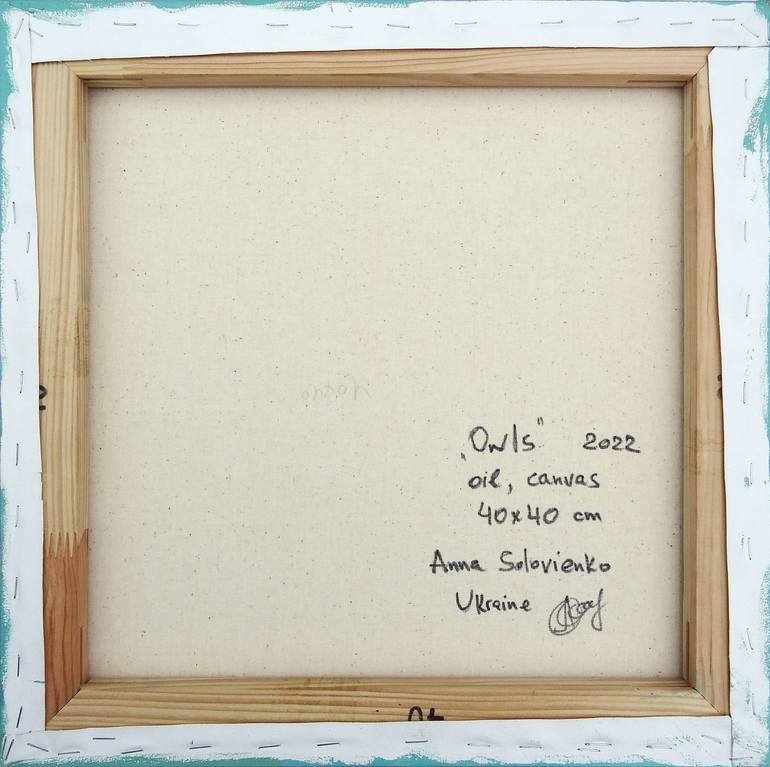 „Owls" 2022
oil, canvas
40x40 cm
Anna Solovienko
Ukraine
40